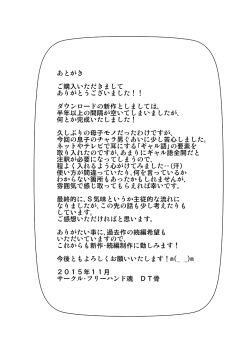 あとがき
ご購入いただきまして
ありがとうございました！！
ダウンロードの新作としましては、
半年以上の間隔が空いてしまいましたが、
何とか完成いたしました！
久しぶりの母子モノだったわけですが、
今回の息子のチャラ男ぐあいに少し苦心しました。
ネットやテレビで耳にする「ギャル語」の要素を
取り入れたのですが、あまりにギャル語全開だと
注釈が必要になってしまうので、
程よく入れるよう心がけてみました…（汗）
使い方が間違っていたり、何を言っているか
わからない箇所もあったかもしれませんが、
雰囲気で感じ取ってもらえれば幸いです。
最終的に、S気味というか主従的な流れに
なりましたが、この先の話も少し考えたりも
しています。
ご感想いただければと思います。
ありがたい事に、過去作の続編希望も
いただいていますので、
これからも新作・続編制作に励みます！
今後ともよろしくお願いいたします！m(_ _)m
２０１５年１１月
サークル・フリーハンド魂　DT骨